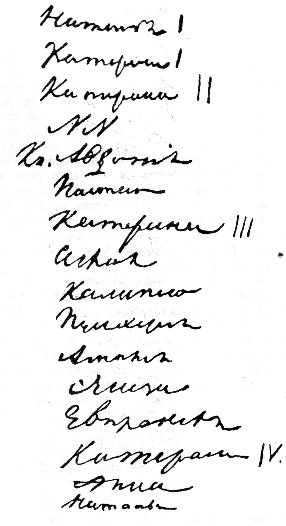 Наталья I
Катерина I
Катерина II
NN
Кн. Авдотія
Настасья
Катерина III
Аглая
Калипсо
Пулхерія
Амалія
Элиза
Евпраксея
Катерина IV.
Анна
Наталья